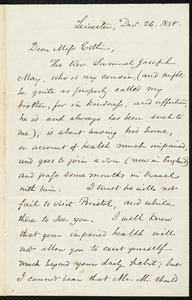 Leicester, Dec. 26, 1858.
Dear Miss Estlin,
The Rev. Samuel Joseph
May, who is my cousin (and might
be quite as properly called my
brother, for in kindness, and affection,
he is and always has been such to
me), is about leaving his home,
on account of health much impaired,
and goes to join a son (now in England)
and pass some months in travel
with him. I trust he will not
fail to visit Bristol, and while
there to see you. I well know
that your impaired health will
not allow you to exert yourself
much beyond your daily habit; but
I cannot bear that Mr. M. should